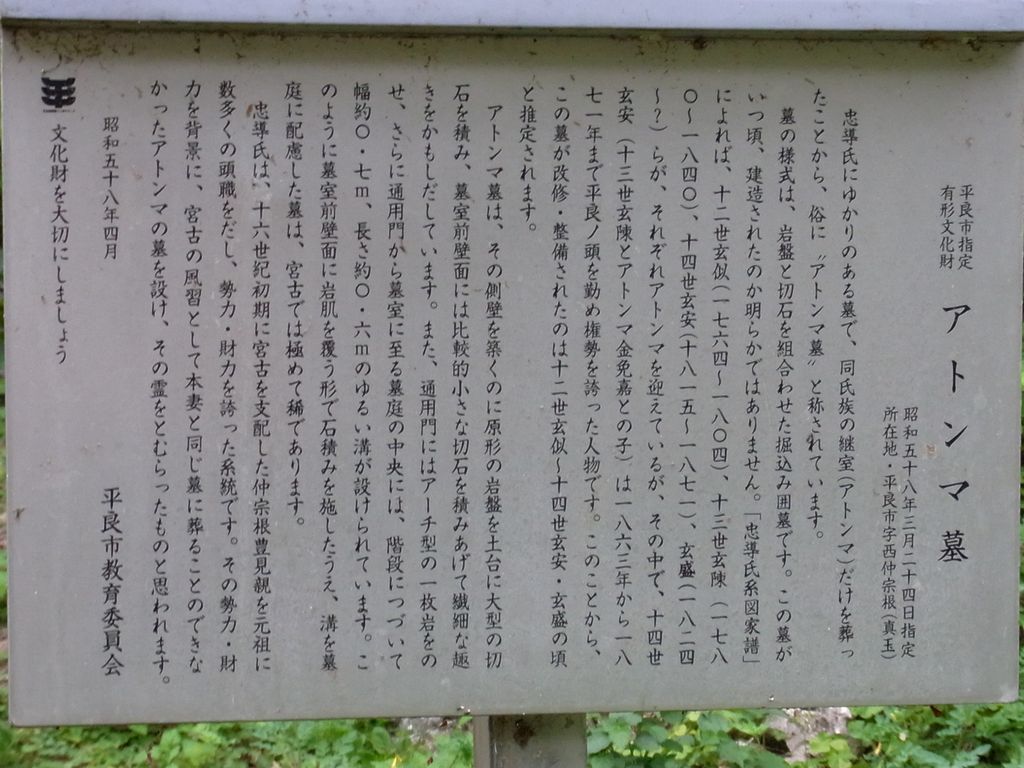 平良市指定
有形文化財
アトンマ墓
昭和五十八年三月二十四日指定
所在地・平良市字西仲宗根(真玉)
忠導氏にゆかりのある墓で、同氏族の継室(アトンマ)だけを葬っ
たことから、俗に〝アトンマ墓〟と称されています。
墓の様式は、岩盤と切石を組合わせた掘込み囲墓です。この墓が
いつ頃、建造されたのか明らかではありません。「忠導氏系図家譜」
によれば、十二世玄似(一七六四〜一八〇四)、十三世玄陳(一七八
〇〜一八四〇)、十四世玄安(十八一五〜一八七一)、玄盛(一八二四
〜?)らが、それぞれアトンマを迎えているが、その中で、十四世
玄安(十三世玄陳とアトンマ金免嘉との子)は一八六三年から一八
七一年まで平良ノ頭を勤め権勢を誇った人物です。このことから、
この墓が改修・整備されたのは十二世玄似〜十四世玄安・玄盛の頃
と推定されます。
アトンマ墓は、その側壁を築くのに原形の岩盤を土台に大型の切
石を積み、墓室前壁面には比較的小さな切石を積みあげて繊細な趣
きをかもしだしています。また、通用門にはアーチ型の一枚岩をの
せ、さらに通用門から墓室に至る墓庭の中央には、階段につづいて
幅約〇・七m、長さ約〇・六mのゆるい溝が設けられています。こ
のように墓室前壁面に岩肌を覆う形で石積みを施したうえ、溝を墓
庭に配慮した墓は、宮古では極めて稀であります。
忠導氏は、十六世紀初期に宮古を支配した仲宗根豊見親を元祖に
数多くの頭職をだし、勢力・財力を誇った系統です。その勢力・財
力を背景に、宮古の風習として本妻と同じ墓に葬ることのできな
かったアトンマの墓を設け、その霊をとむらったものと思われます。
昭和五十八年四月
平良市教育委員会
文化財を大切にしましょう